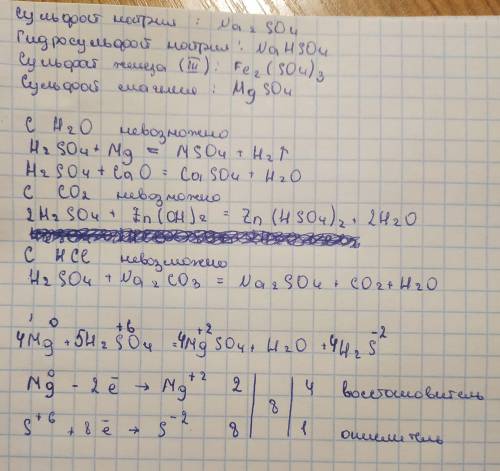 Сульфат натрия : Na₂SO₄
Гидросульфат натрия : NaHSO₄
Сульфат железа (III) : Fe₂(SO₄)₃
Сульфат магния : MgSO₄
С H₂O невозможно
H₂SO₄ + Mg = MSO₄ + H₂↑
H₂SO₄ + CaO = CaSO₄ + H₂O
С CO₂ невозможно
2H₂SO₄ + Zn(OH)₂ = Zn(HSO₄)₂ + 2H₂O
С HCl невозможно
H₂SO₄ + Na₂CO₃ = Na₂SO₄ + CO₂ + H₂O
0 +6 +2 -2
4Mg + 5H₂SO₄ = 4MgSO₄ + H₂O + 4H₂S
Mg⁰ - 2ē → Mg⁺² 2 | 8 | 4 восстановитель
S⁺⁶ + 8ē → S⁻² 8 | | 1 окислитель